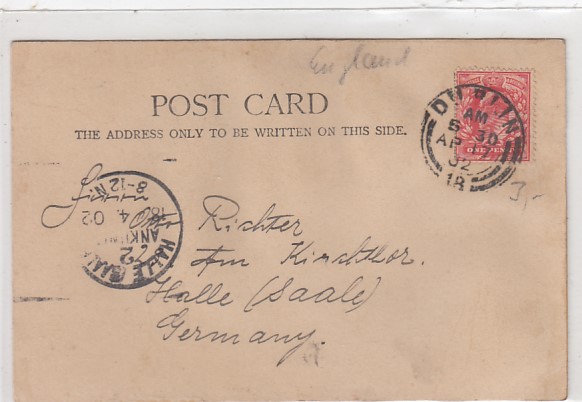 England
POST CARD
THE ADDRESS ONLY TO BE WRITTEN ON THIS SIDE.
DUBLIN
AM
5 30
AP
02
18
ONE PENNY
3,-
Otto Richter
Am Kirchthor.
Halle (Saale)
Germany.
HALLE (SAALE)
2
18 4 02
8-12 N